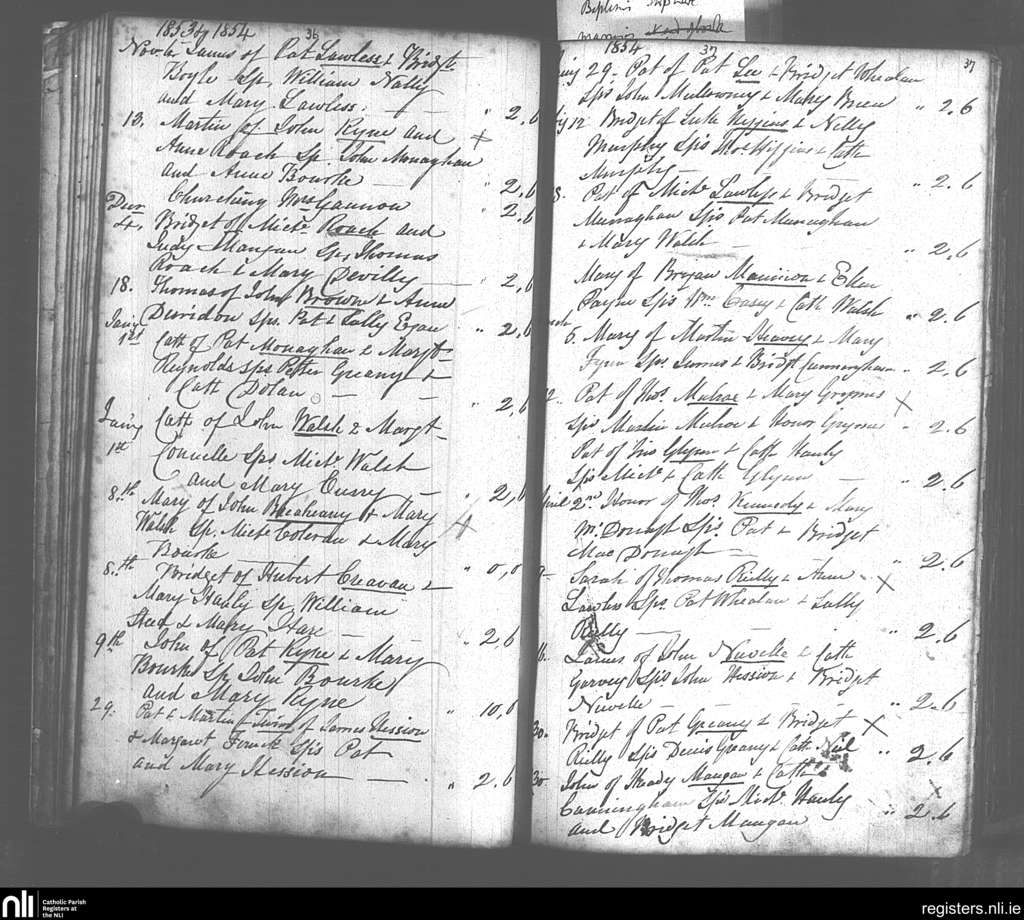 1853 & 1854
36
Novr 6 James of Pat Lawless & Bridgt
Boyle Sp. William Nally
and Mary Lawless. " 2.6
13. Martin of John Kyne and
Anne Roach Sp. John Monaghan
and Anne Bourke " 2.6
Churching Mrs Gannon " 2.6
Decr
4. Bridget of Michl Roach and
Judy Mangan Sp. Thomas
Roach & Mary Devilly " 2.6
18. Thomas of John Browne & Anne
Sps. Pat & Sally Egan " 2.6
Jany
1st Cath of Pat Monaghan & Margt
Reynolds Sps Peter Greany &
Cath Dolan " 2.6
Jany
1st Cath of John Walsh & Margt
Sps Michl Walsh
and Mary Curry " 2.6
8th Mary of John & Mary
Walsh Sp. Michl & Mary
Bourke " 0.0
8th Bridget of Hubert Creavan &
Mary Hanly Sp. William
& Mary Hare " 2.6
9th John of Pat Kyne & Mary
Bourke Sp. John Bourke
and Mary Kyne " 10.0
29. Pat & Martin Twins of James Hession
& Margaret Sps Pat
and Mary Hession " 2.6
Baptms
1854
37
37
Jany 29. Pat of Pat Lee & Bridget Whealan
Sps John Mullowney & Mary " 2.6
12 Bridget of Luke Higgins & Nelly
Murphy Sps Thos Higgins & Cath
Murphy " 2.6
Pat of Michl Lawless & Bridget
Monaghan Sps Pat Monaghan
& Mary Walsh " 2.6
Mary of Bryan Mannion & Ellen
Payne Sps Wm Casey & Cath Walsh " 2.6
5. Mary of Martin & Mary
Sps James & Bridgt Cunningham " 2.6
Pat of Thos. Mulroe & Mary
Sps Martin Mulroe & Honor " 2.6
Pat of Glynn & Cath Hanly
Sps Michl & Cath Glynn " 2.6
April 2nd Honor of Thos Kennedy & Mary
McDonagh Sps Pat & Bridget
MacDonagh " 2.6
Sarah of Thomas Reilly & Anne
Lawless Sps Pat Whealan & Sally
Reilly " 2.6
16. James of John Neville & Cath
Garvey Sps John Hession & Bridget
Neville " 2.6
30. Bridget of Pat Greany & Bridget
Reilly Sps Denis Greany & Cath " 2.6
30 John of Mangan & Cath
Cunningham Sps Michl Hanly
and Bridget Mangan " 2.6
nli
Catholic Parish
Registers at
the NLI
registers.nli.ie